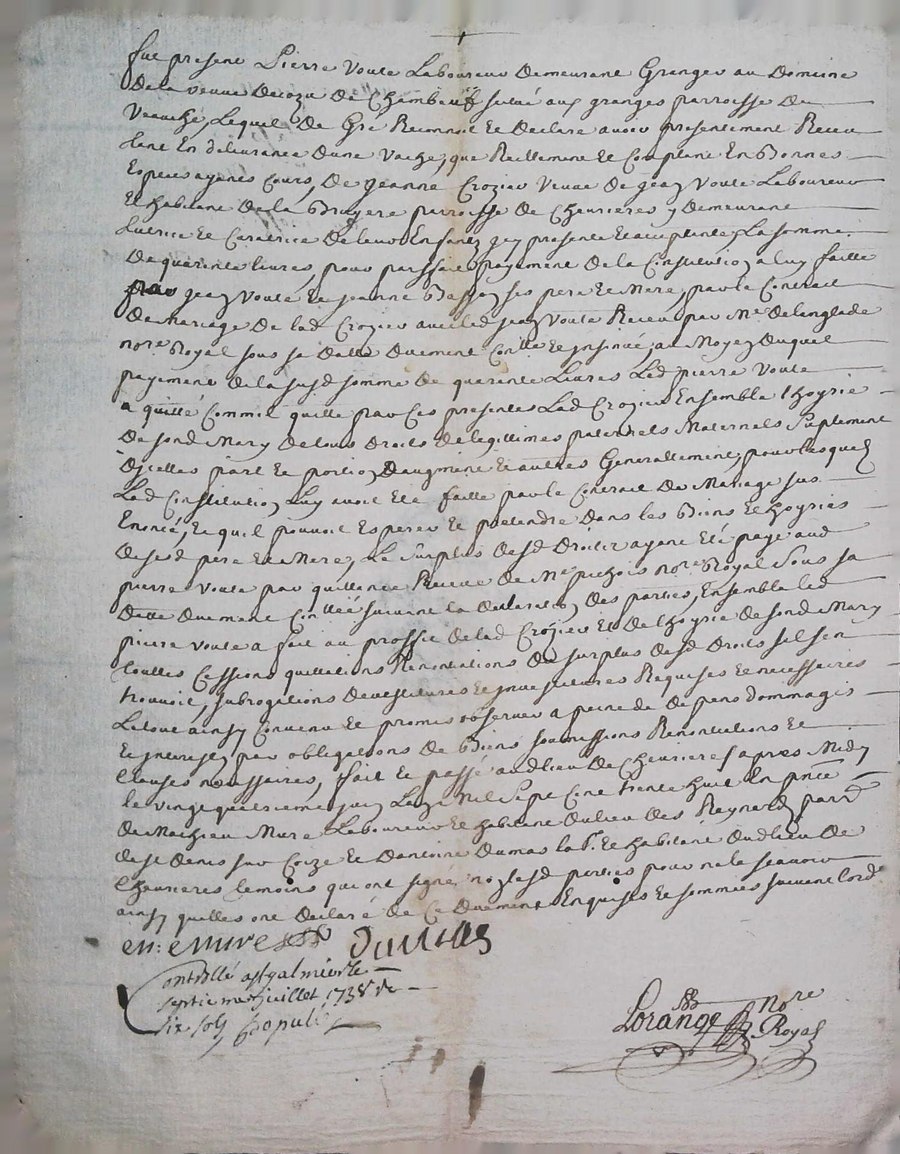 fut present Pierre Voute Laboureur Demeurant Granger au Domaine
De la veuve Decozu De Chambeuf situé aux granges parroisse De
Veauche, Lequel De Gré Reconnoit Et Declare avoir presentement Receu
tant En delivrance Dune Vache, que Reellement Et Comptant En Bonnes
Especes ayant Cours, De jeanne Crozier Veuve De jean Voute Laboureur
Et habitant De la Bruyere parroisse De Chevrieres y Demeurant
tutrice Et Curatrice De leurs Enfants jcy presente Et acceptante, La somme
De quarente livres, pour parfait payement De la Constitution a luy faitte
par jean Voute Et jeanne Basson ses pere Et Mere, par le Contrait
De mariage De lad Crozier avec led jean Voute Receu par Me Delanglade
nore Royal sous sa Datte Duement Conllé Et jnsinué, au Moyen Duquel
payement De la susd somme De quarente Livres Led pierre Voute
a quitté Comme quitte par Ces presentes Lad Crozier Ensemble lhoyrie
De sond Mary De tous Droits De legittimes paternels Maternels Suplement
Djcelles part Et portion Daugment Et autres Generallement, pour lesquels
Lad Constitution Luy avoit Eté faitte par le Contrait De Mariage sus
Enoncé, Et quil pouvoit Esperer Et pretendre Dans les Biens Et hoyries
De sesd pere Et Mere, Le Surplus Desd Droits ayant Eté payé aud
pierre Voute par quittance Receue De Me pichois nore Royal Sous sa
Datte Duemant Conllée suivant la Declaration Des parties, Ensemble led
pierre Voute a fait au proffit De lad Crozier Et De lhoyrie De sond Mary
touttes Cessions quittations Renontiations Du surplus Desd Droits sil sen
trouvoit, subrogations Devestitures Et jnvestitures Requises Et necessaires
Le tout ainsy Convenu Et promis observer a peine De pens Dommages
Et jnterests par obligations De Biens soumissions Renontiations Et
Clauses necessaires, fait Et passé aud lieu De Chevrieres apres Midy
le vingt quatrieme juin Lan Mil Sept Cent trente huit En pnce
De Mathieu Mure Laboureur Et habitant Du lieu Des Reynard parr
De st Denis sur Coize Et Dantoine Dumas lab. Et habitant Dud lieu De
Chevrieres temoins qui ont signé, non lesd parties pour ne le scavoir
ainsy quelles ont Declaré De Ce Duement Enquises Et sommées suivant lord.
m: mure Dumas
Controllé a st galmier le
septieme juillet 1738 Rs
six sols
Lorange nore
Royal